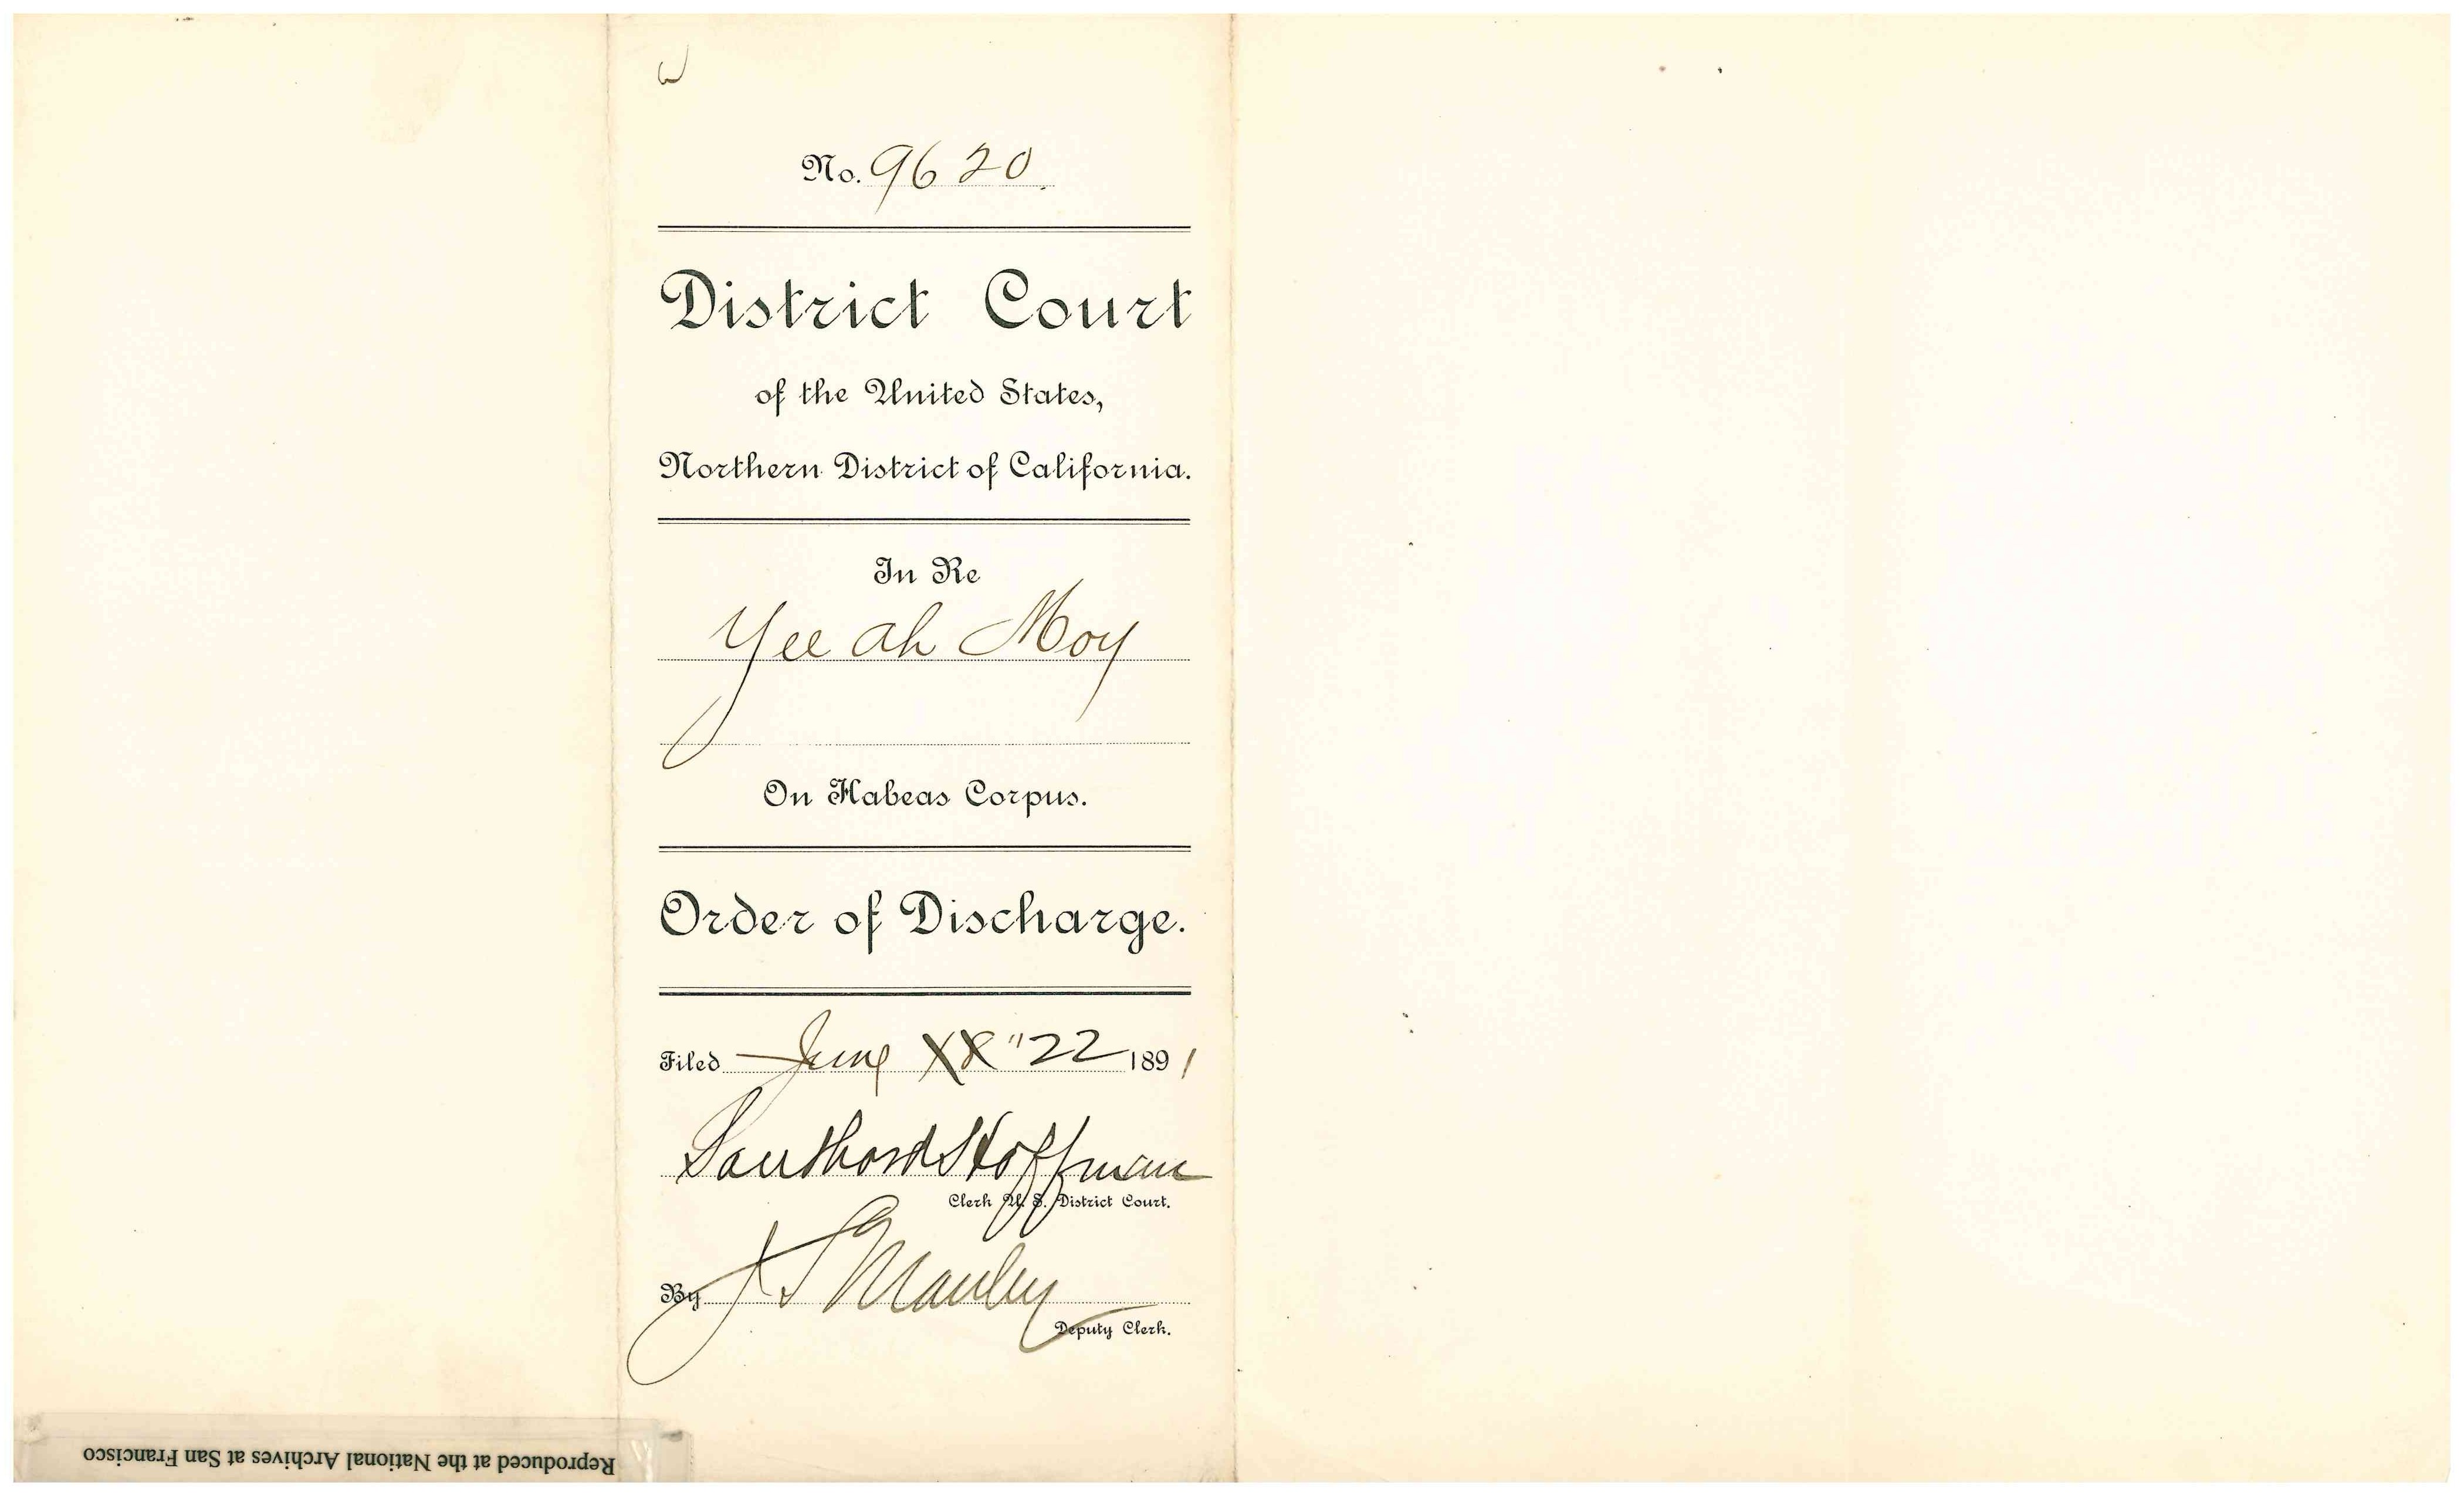 No. 9620.
District Court
of the United States,
Northern District of California.
In Re
Yee Ah Moy
On Habeas Corpus.
Order of Discharge.
Filed June 18 "22 1891
Southard Hoffman
Clerk U. S. District Court.
By J S Manley
Deputy Clerk.
Reproduced at the National Archives at San Francisco